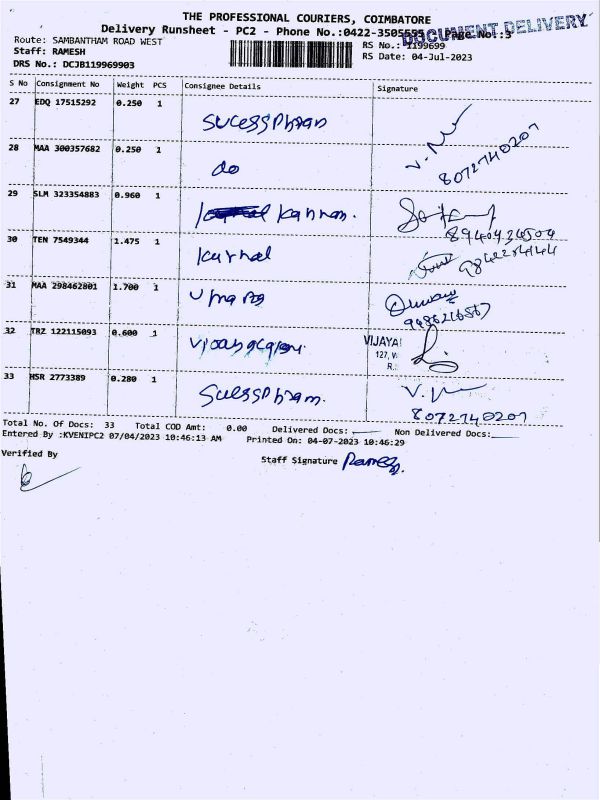 THE PROFESSIONAL COURIERS, COIMBATORE
Delivery Runsheet - PC2 - Phone No.:0422-3505555 Page No.:3
DOCUMENT DELIVERY
Route: SAMBANTHAM ROAD WEST RS No.: 1199699
Staff: RAMESH RS Date: 04-Jul-2023
DRS No.: DCJB119969903
S No Consignment No Weight PCS Consignee Details Signature
27 EDQ 17515292 0.250 1
8072740207
28 MAA 300357682 0.250 1 do
29 SLM 323354883 0.960 1 Kannan.
8940434504
30 TEN 7549344 1.475 1
31 MAA 298462801 1.700 1
32 TRZ 122115093 0.600 1 VIJAYA
127, W
R.
33 HSR 2773389 0.280 1
8072740207
Total No. Of Docs: 33 Total COD Amt: 0.00 Delivered Docs: Non Delivered Docs:
Entered By :KVENIPC2 07/04/2023 10:46:13 AM Printed On: 04-07-2023 10:46:29
Verified By
Staff Signature Ramesh